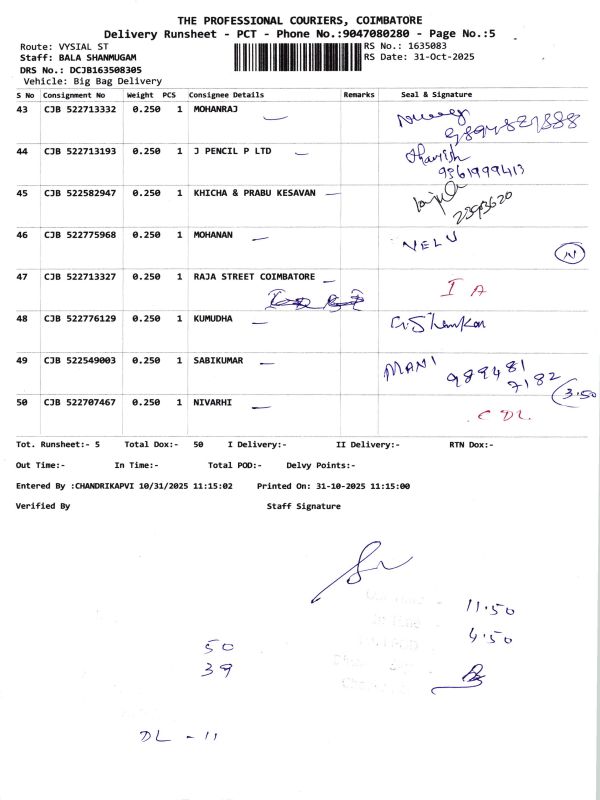 THE PROFESSIONAL COURIERS, COIMBATORE
Delivery Runsheet - PCT - Phone No.:9047080280 - Page No.:5
Route: VYSIAL ST RS No.: 1635083
Staff: BALA SHANMUGAM RS Date: 31-Oct-2025
DRS No.: DCJB163508305
Vehicle: Big Bag Delivery
S No Consignment No Weight PCS Consignee Details Remarks Seal & Signature
43 CJB 522713332 0.250 1 MOHANRAJ
44 CJB 522713193 0.250 1 J PENCIL P LTD
9361999413
45 CJB 522582947 0.250 1 KHICHA & PRABU KESAVAN
2393620
46 CJB 522775968 0.250 1 MOHANAN VELU
N
47 CJB 522713327 0.250 1 RAJA STREET COIMBATORE I A
48 CJB 522776129 0.250 1 KUMUDHA
49 CJB 522549003 0.250 1 SABIKUMAR MANI 989481
7182
3.50
50 CJB 522707467 0.250 1 NIVARHI C DL.
Tot. Runsheet:- 5 Total Dox:- 50 I Delivery:- II Delivery:- RTN Dox:-
Out Time:- In Time:- Total POD:- Delvy Points:-
Entered By :CHANDRIKAPVI 10/31/2025 11:15:02 Printed On: 31-10-2025 11:15:00
Verified By Staff Signature
11.50
4.50
50
39
DL - 11